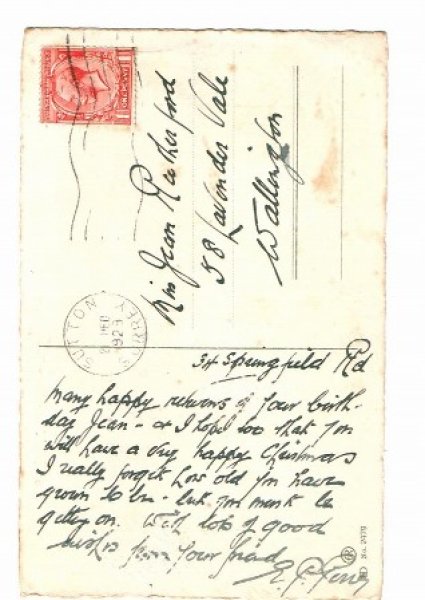 Miss Jean Rutherford
58 Lavender Vale
Wallington
SUTTON SURREY
DEC 1923
34 Springfield Rd
Many happy returns of your birth-
day Jean - & I hope too that you
will have a very happy Christmas
I really forget how old you have
grown to be - but you must be
getting on. With lots of good
wishes from your friend
E.
No. 2479